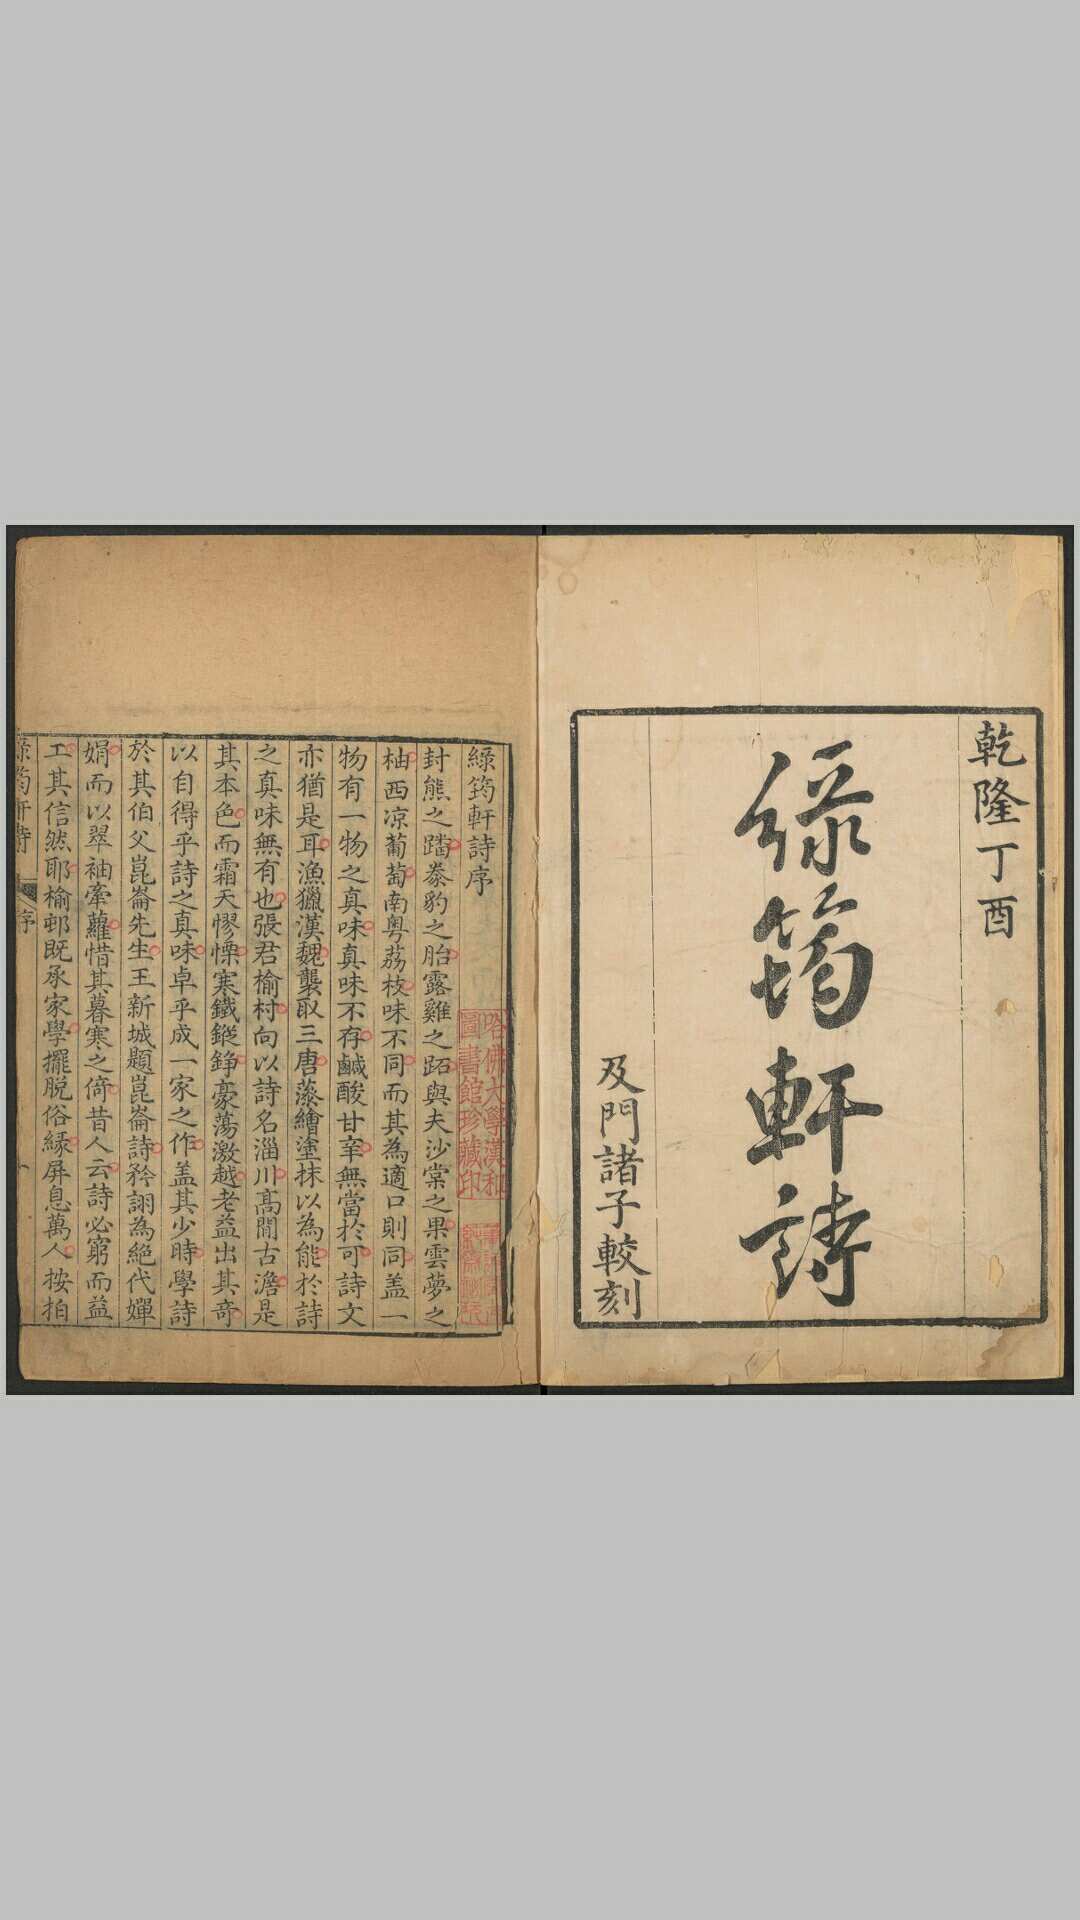 乾隆丁酉
綠筠軒詩
及門諸子較刻
綠筠軒詩序
封熊之蹯豢豹之胎露雞之跖與夫沙棠之果雲夢之
柚西凉葡萄南粤荔枝味不同而其為適口則同盖一
物有一物之真味真味不存鹹酸甘辛無當於可詩文
亦猶是耳漁獵漢魏襲取三唐藻繪塗抹以為能於詩
之真味無有也張君榆村向以詩名淄川高閒古澹是
其本色而霜天憀慄寒鐵鏦錚豪蕩激越老益出其奇
以自得乎詩之真味卓乎成一家之作盖其少時學詩
於其伯父崑崙先生王新城題崑崙詩矜詡為絶代嬋
娟而以翠袖牽蘿惜其暮寒之倚昔人云詩必窮而益
工其信然耶榆邨既承家學擺脱俗緣屏息萬人按拍
綠筠軒詩
序
哈佛大學漢和圖書館珍藏印